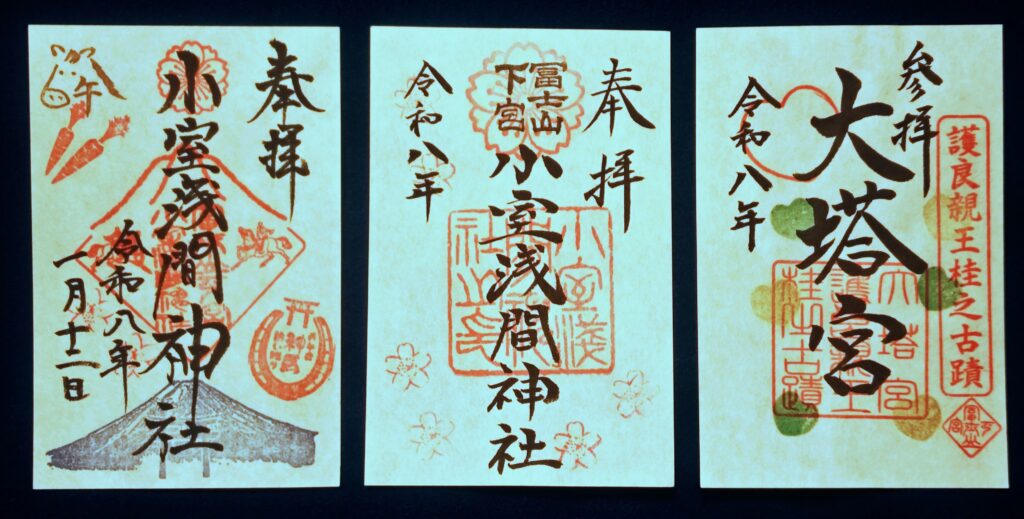 奉拝
小室浅間神社
令和八年
一月十二日
午
奉拝
冨士山
下宮
小室浅間神社
令和八年
参拝
大塔宮
令和八年
護良親王桂之古蹟